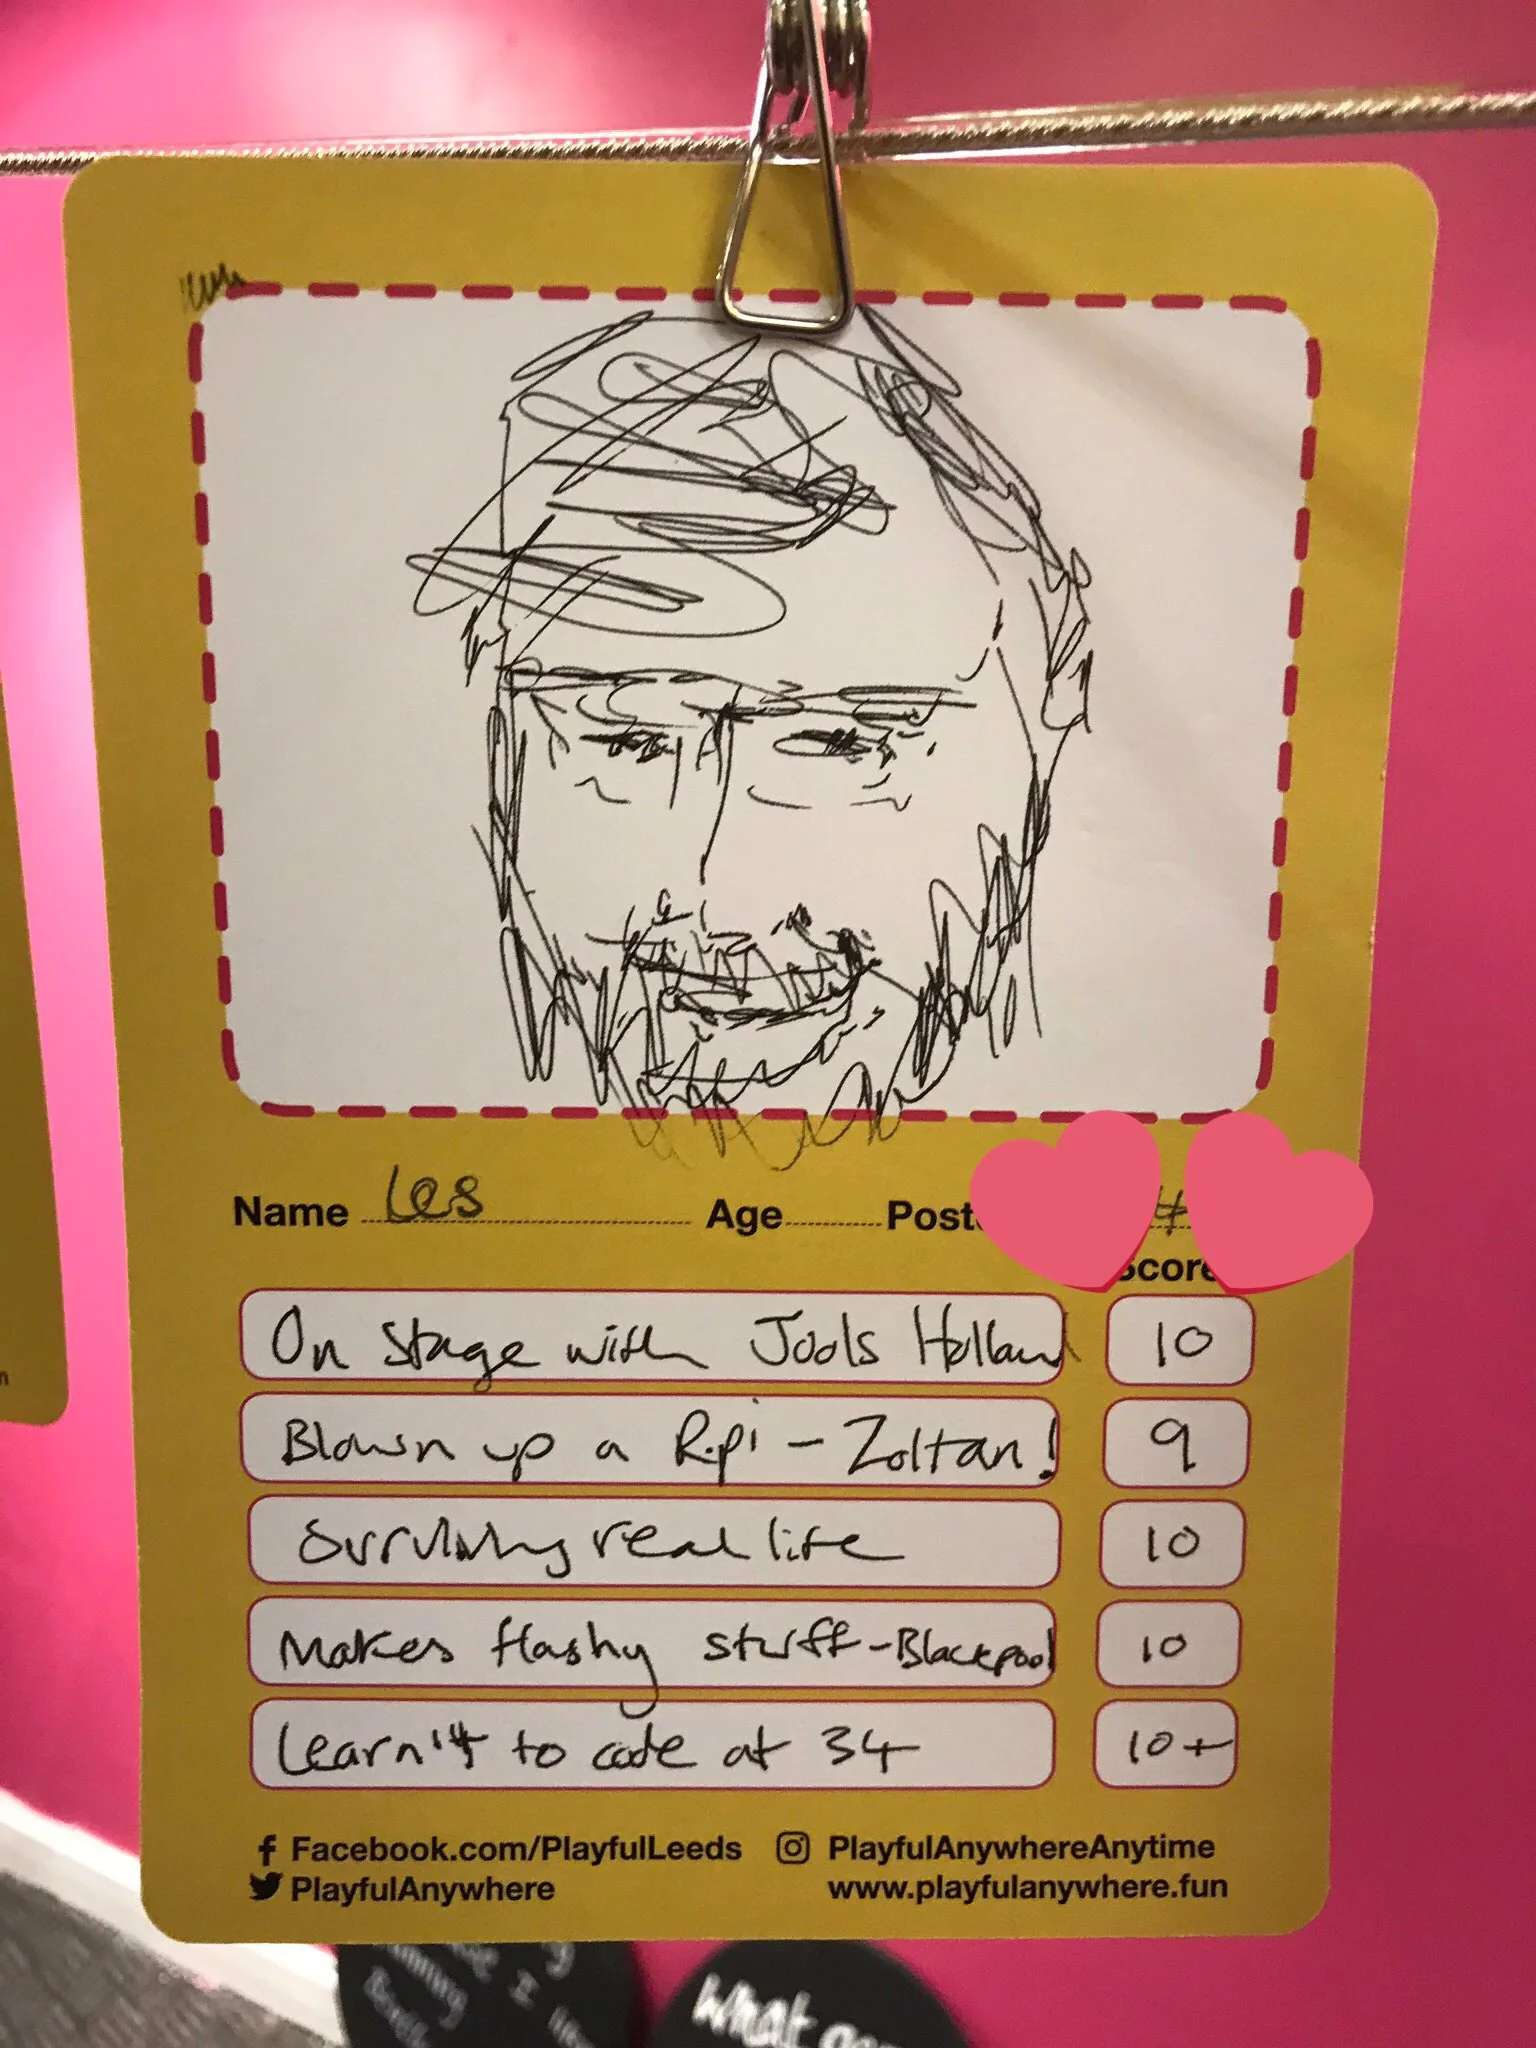 Name Les Age Post
Score
On stage with Jools Holland 10
Blown up a R.pi - Zoltan! 9
Surviving real life 10
Makes flashy stuff - Blackpool 10
Learn't to code at 34 10+
Facebook.com/PlayfulLeeds PlayfulAnywhereAnytime
PlayfulAnywhere www.playfulanywhere.fun
what